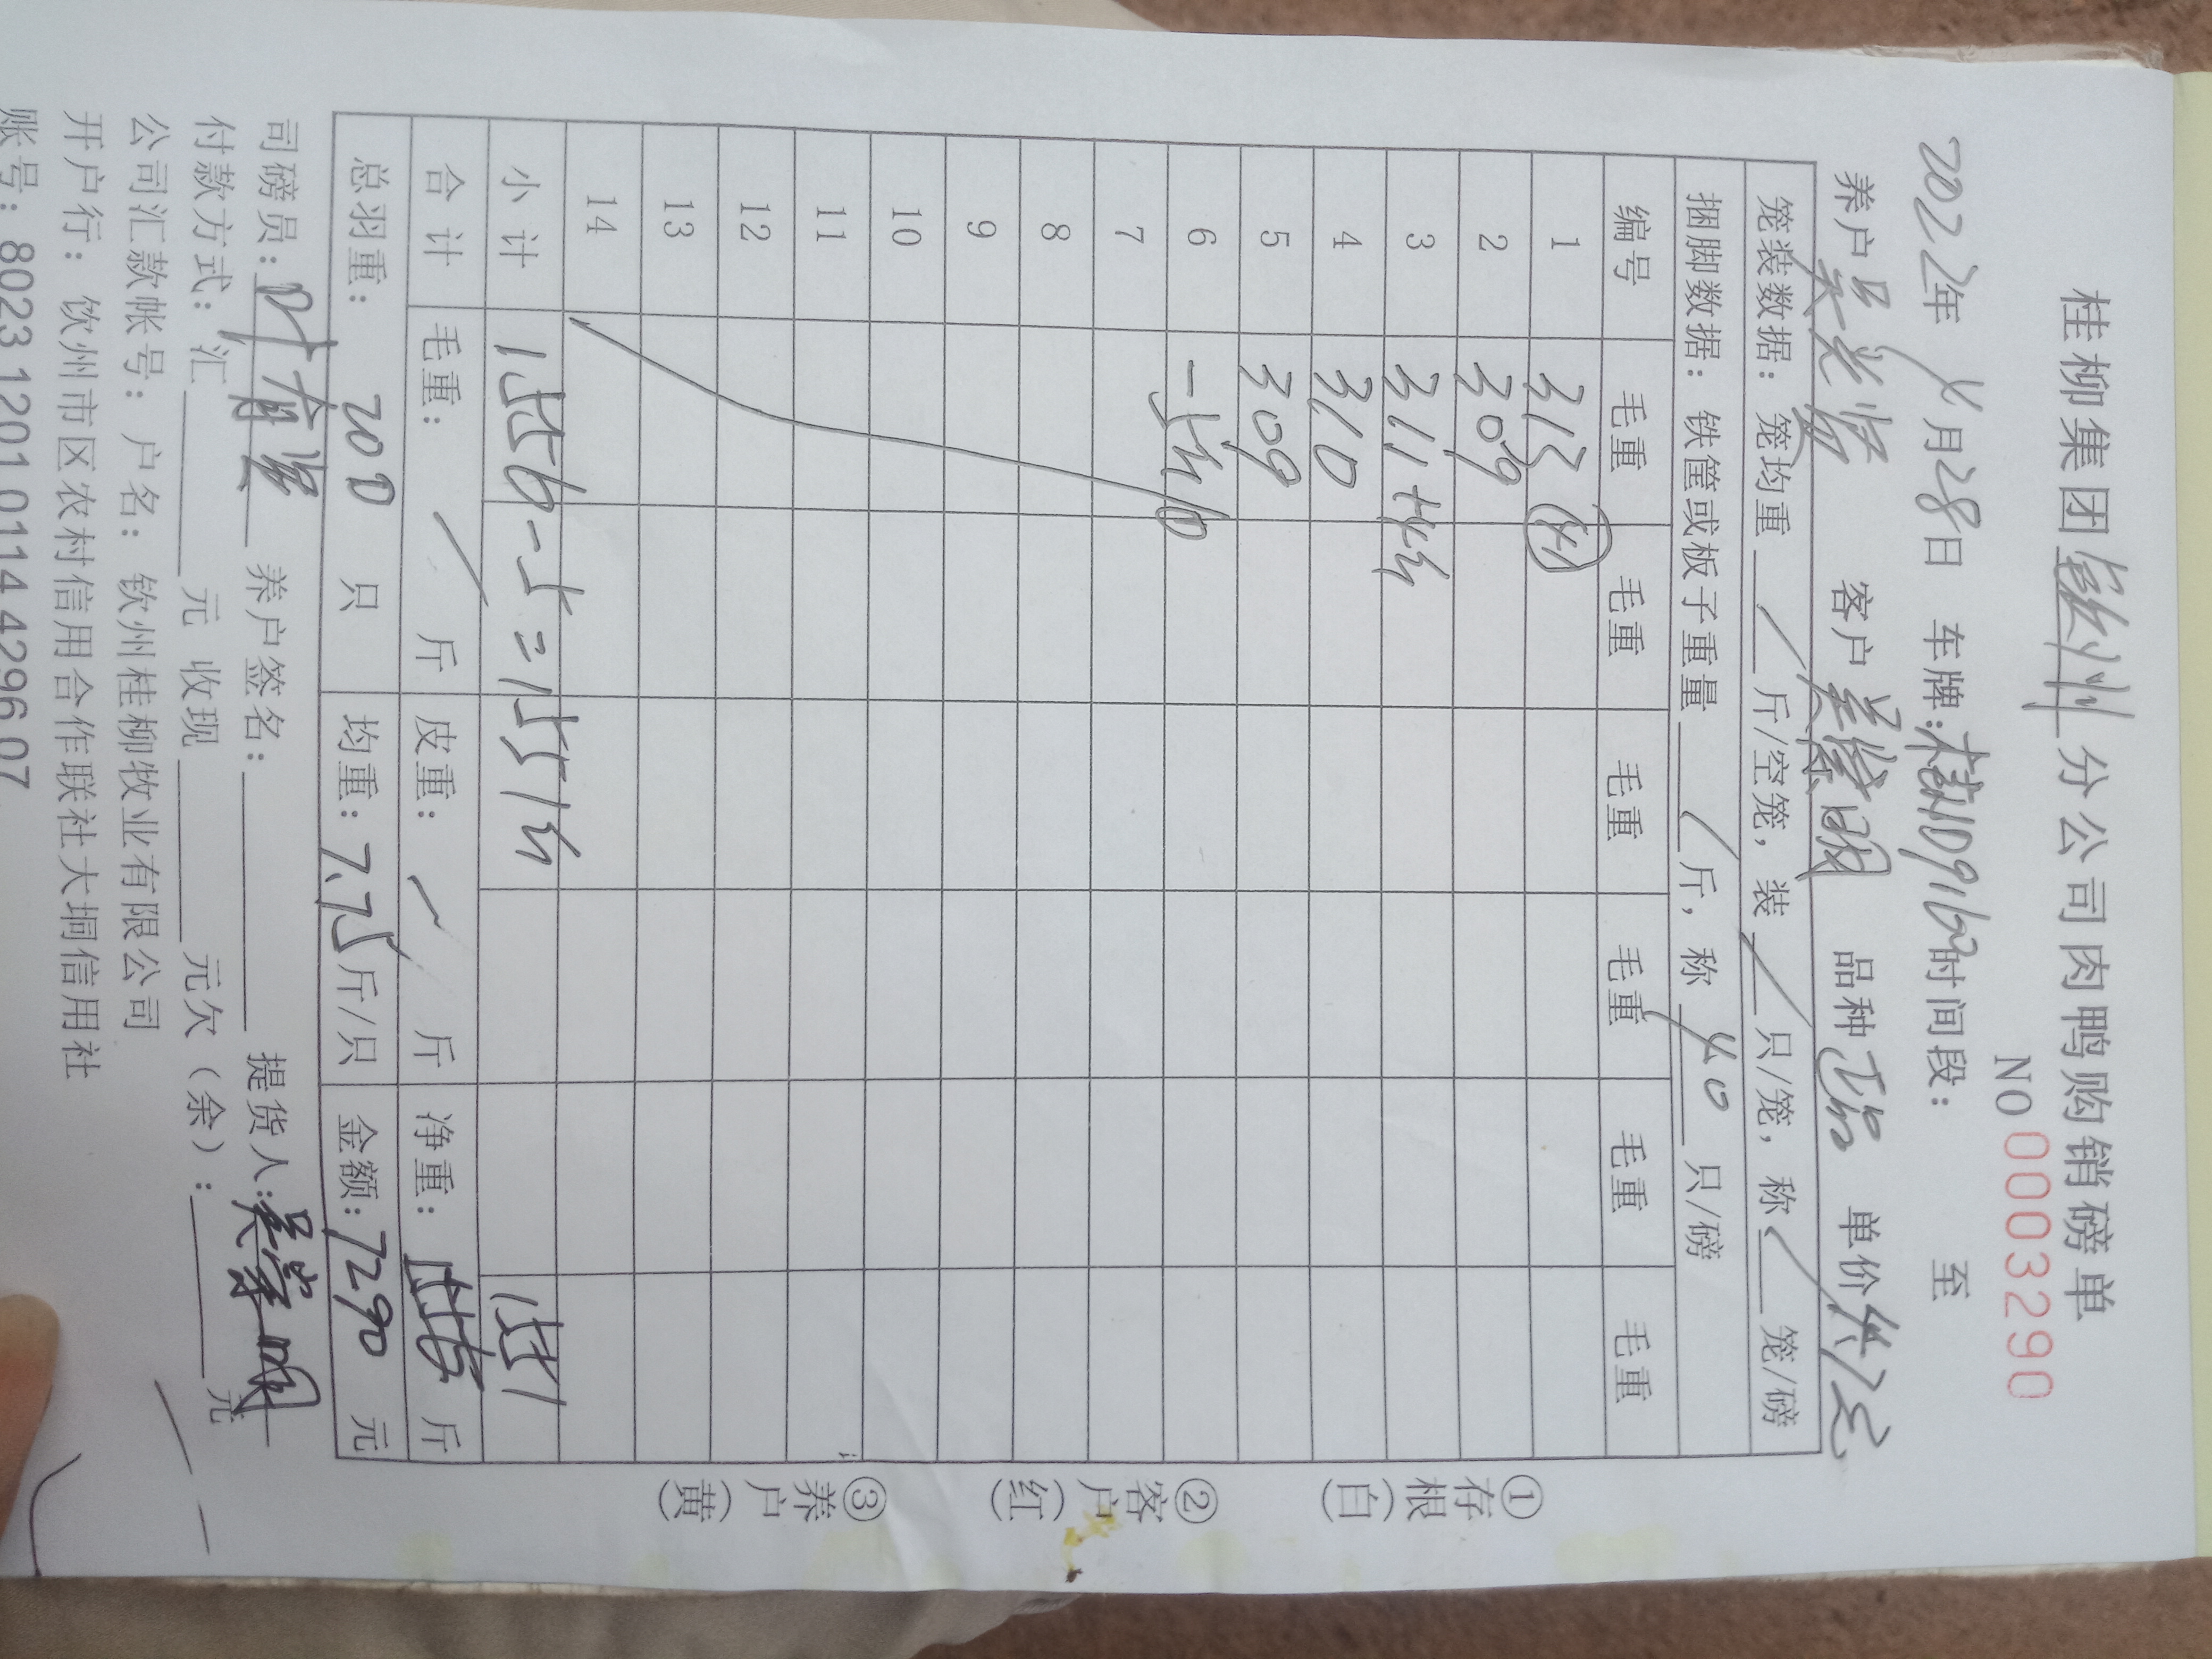 桂柳集团钦州分公司肉鸭购销磅单
NO 0003290
2022年4月28日 车牌:桂D9162时间段: 至
养户 客户 品种 单价
笼装数据: 笼均重 / 斤/空笼, 装 / 只/笼, 称 / 笼/磅
捆脚数据: 铁筐或板子重量 / 斤, 称 40 只/磅
编号 毛重 毛重 毛重 毛重 毛重 毛重
1 313
2 309
3 311
4 310
5 309
6
7
8
9
10
11
12
13
14
小计 1556-5=1551 1551
合计 毛重: / 斤 皮重: / 斤 净重: 斤
总羽重: 200 只 均重: 7.75 斤/只 金额: 7290 元
司磅员: 养户签名: 提货人:
付款方式: 汇 元 收现 元欠(余): 元
公司汇款帐号: 户名: 钦州桂柳牧业有限公司
开户行: 饮州市区农村信用合作联社大垌信用社
账号: 8023 1201 0114 4296 07
①存根(白) ②客户(红) ③养户(黄)